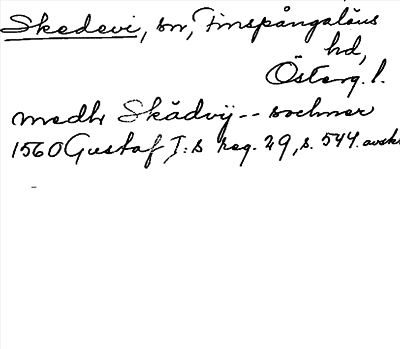 Skedevi, sn, Finspångaläns
hd,
Österg. l.
medh Skădvij -- sochner
1560 Gustaf I:s reg. 29, s. 544. avskr